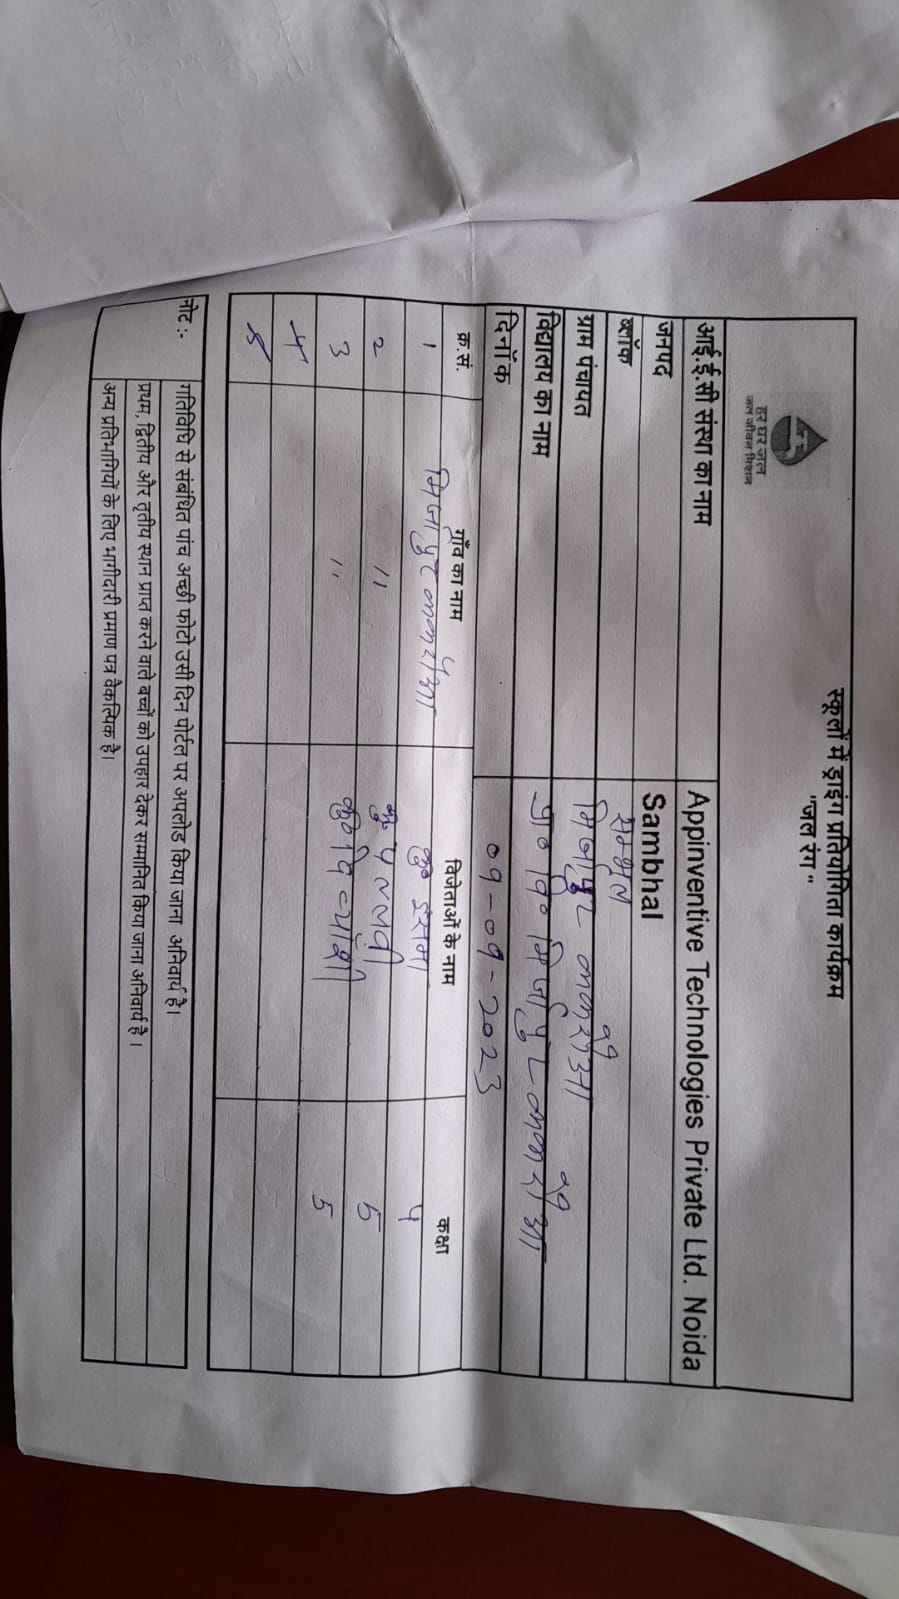 हर घर जल
जल जीवन मिशन
स्कूलों में ड्राइंग प्रतियोगिता कार्यक्रम
"जल रंग"
आई.ई.सी संस्था का नाम Appinventive Technologies Private Ltd. Noida
जनपद Sambhal
ब्लॉक सम्भल
ग्राम पंचायत
विद्यालय का नाम प्रा० वि०
दिनाँक ०9-०9-2०23
क्र.सं. गाँव का नाम विजेताओं के नाम कक्षा
1 कु०
2 " कु० पल्लवी 5
3 " कु० 5
4
5
नोट :- गतिविधि से संबंधित पांच अच्छी फोटो उसी दिन पोर्टल पर अपलोड किया जाना अनिवार्य है।
प्रथम, द्वितीय और तृतीय स्थान प्राप्त करने वाले बच्चों को उपहार देकर सम्मानित किया जाना अनिवार्य है।
अन्य प्रतिभागियों के लिए भागीदारी प्रमाण पत्र वैकल्पिक है।